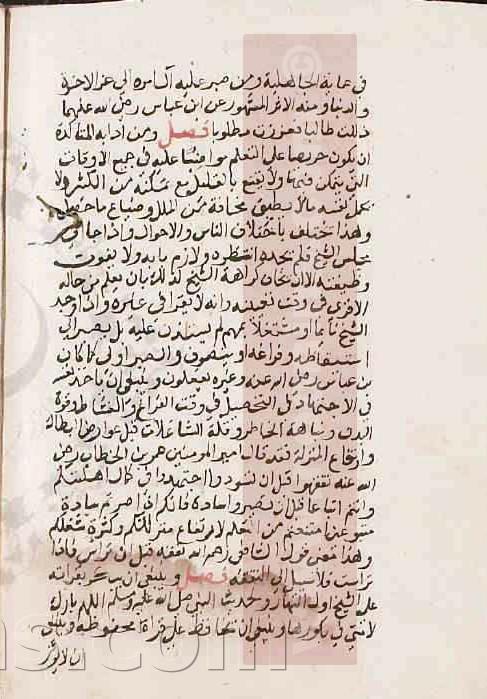 في عماية الجاهلية ومن صبر عليه آل امره الى عز الاخرة
والدنيا ومنه الاثر المشهور عن ابن عباس رضي الله عنهما
ذللت طالبا فعززت مطلوبا فصل ومن ادابه المتاكدة
ان يكون حريصا على التعلم مواظبا عليه في جميع الاوقات
التي يتمكن فيها ولا يقنع بالقليل مع تمكنه من الكثير ولا
يحمل نفسه مالا يطيق مخافة من الملل وضياع ما حصل
وهذا يختلف باختلاف الناس والاحوال واذا جا الى
مجلس الشيخ فلم يجده انتظره ولازم بابه ولا يفوت
وظيفته الا ان يخاف كراهة الشيخ لذلك بان يعلم من حاله
الاقرى في وقت بعينه وانه لا يقرا في غيره واذا وجد
الشيخ نائما او مشتغلا بمهم لم يستاذن عليه بل يصبر الى
استيقاظه وفراغه او ينصرف والصبر اولى كما كان
بن عباس رضي الله عنه وغيره يفعلون وينبغي ان ياخذ نفسه
في الاجتهاد في التحصيل في وقت الفراغ والنشاط وقوة
البدن ونباهة الخاطر وقلة الشاغلات قبل عوارض البطالة
وارتفاع المنزلة فقد قال امير المومنين عمر بن الخطاب رضي
الله عنه تفقهوا قبل ان تسودوا اجتهدوا في كمال اهليتكم
وانتم اتباعا قبل ان تصيروا سادة فانكم اذا صرتم سادة
متبوعين امتنعتم من التعلم لارتفاع منزلتكم وكثرة شغلكم
وهذا معنى قول الشافعي رحمه الله تفقه قبل ان تراس فاذا
تراست فلا سبيل الى التفقه فصل وينبغي ان يبكر بقراته
على الشيخ اول النهار وحديث النبي صلى الله عليه وسلم اللهم بارك
لامتي في بكورها وينبغي ان يحافظ على قراة محفوظه وينبغي
ان لا يوثر